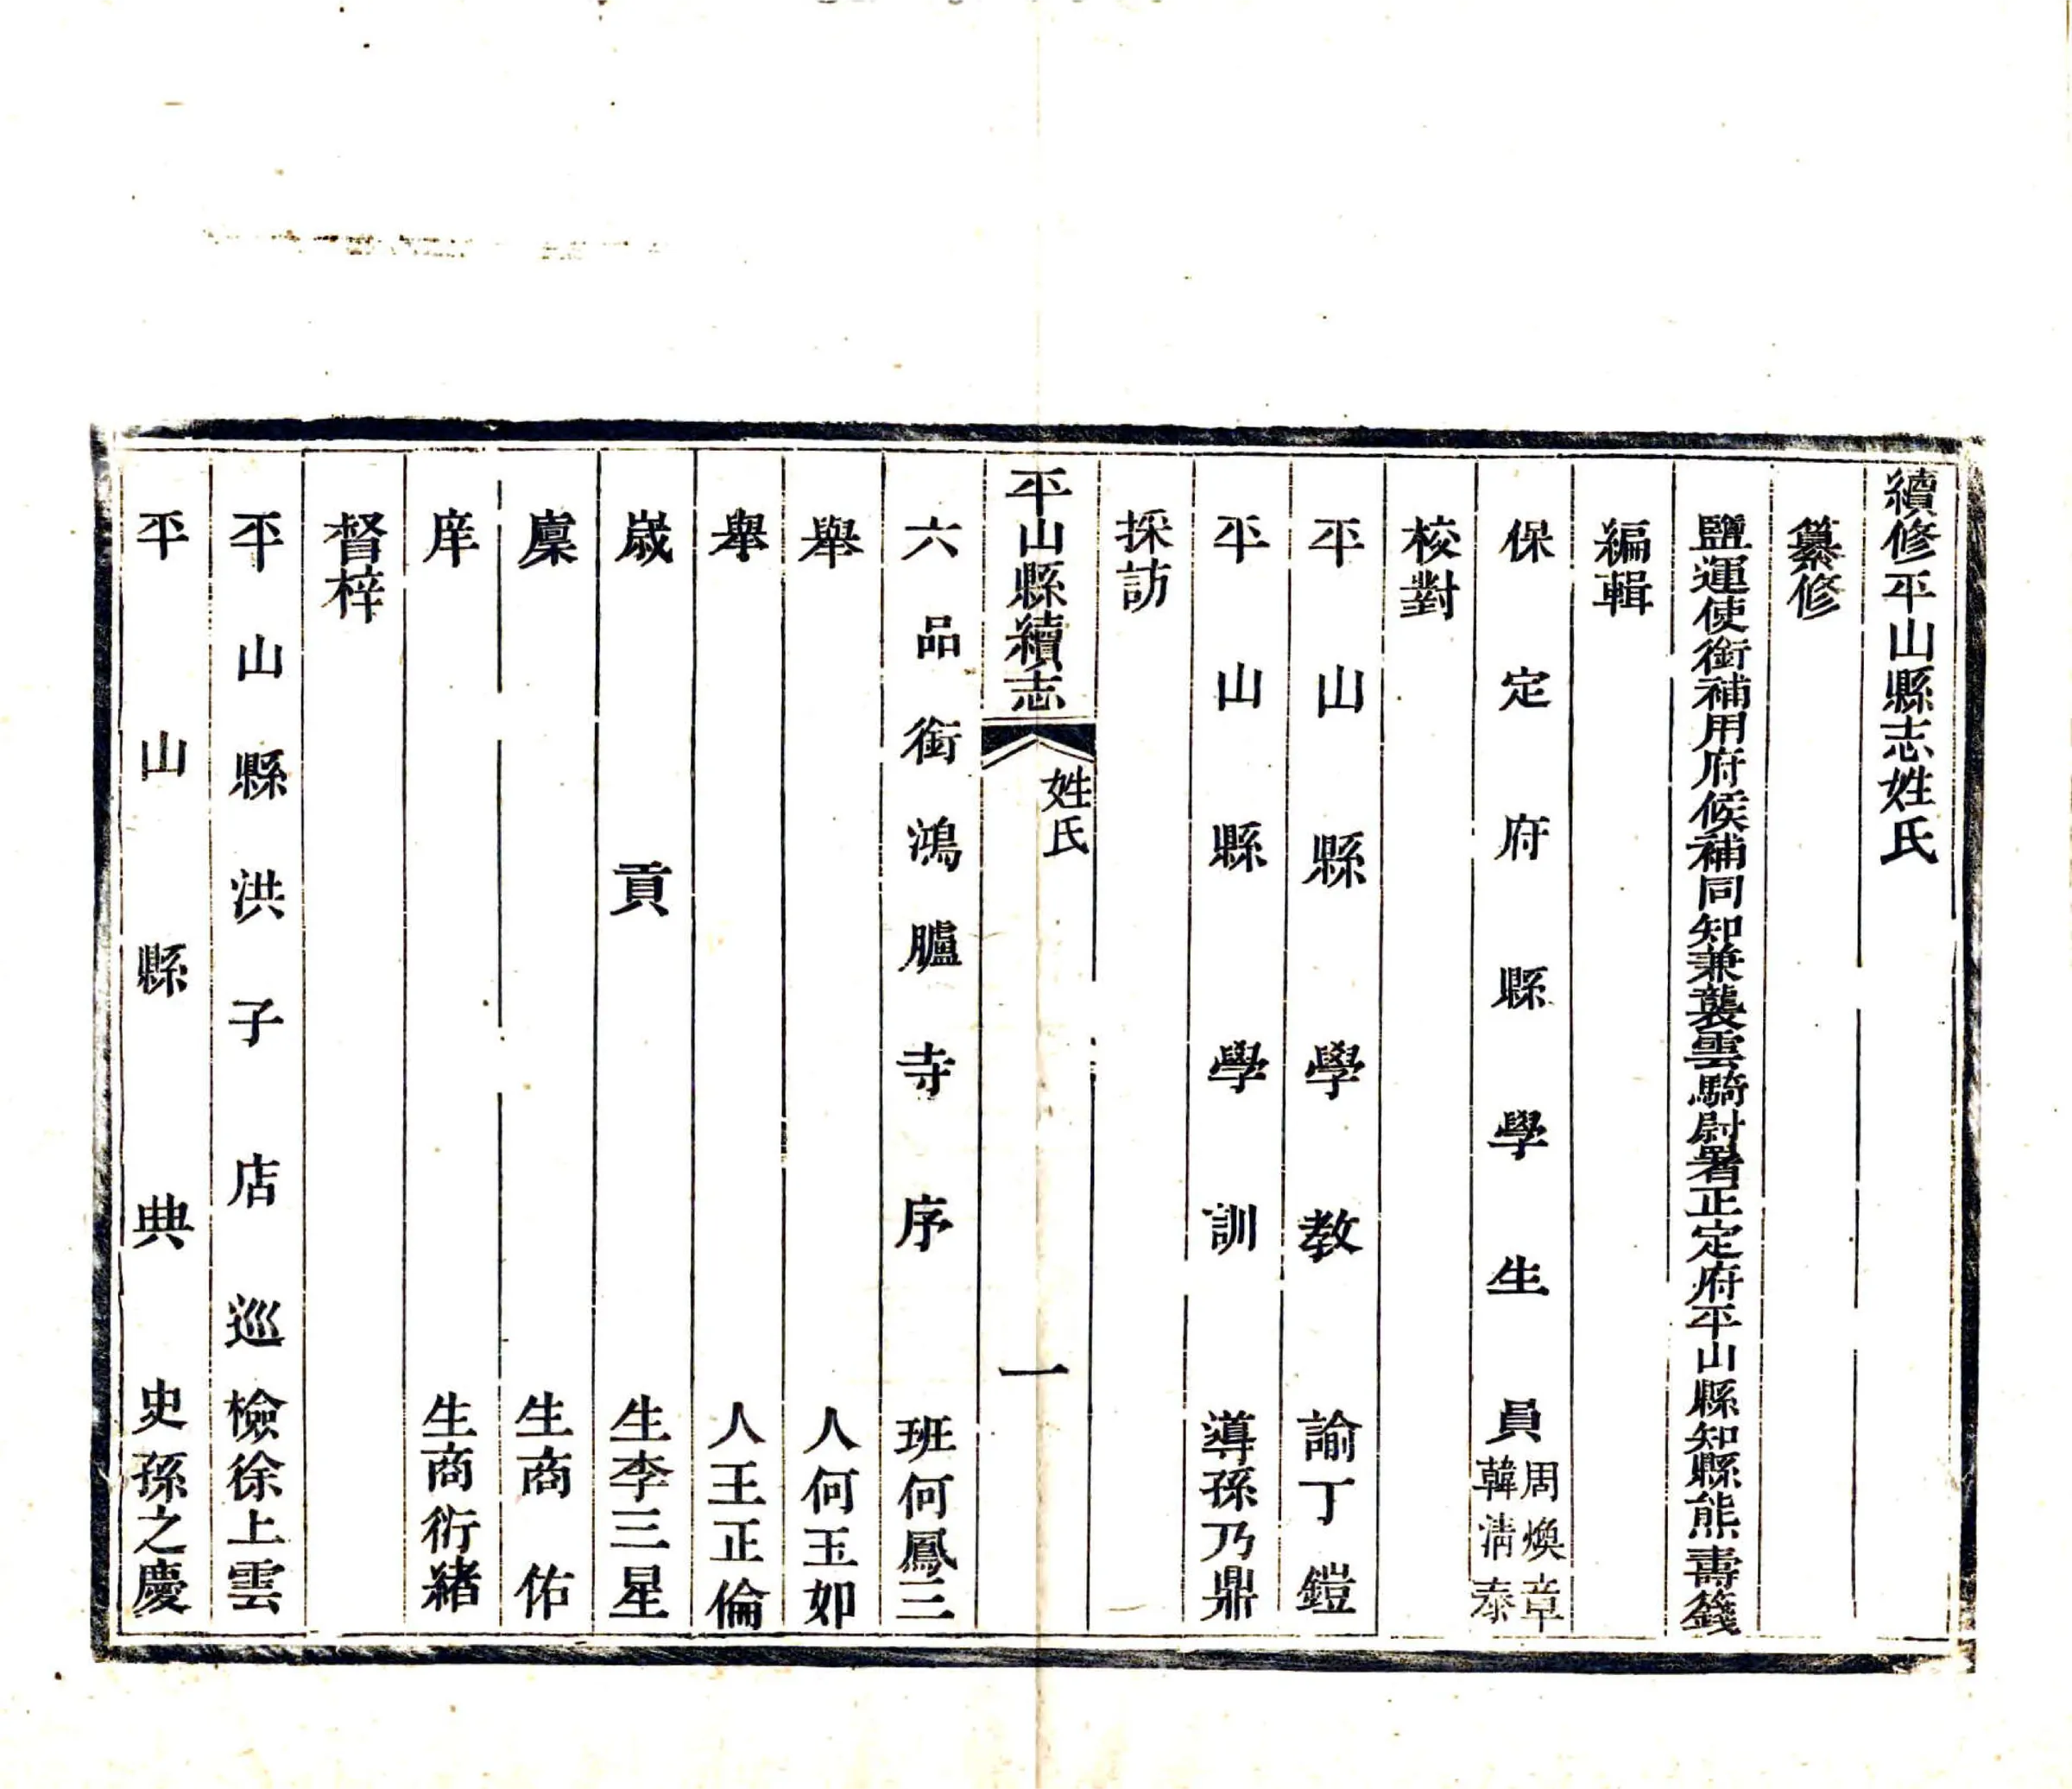 續修平山縣志姓氏
纂修
鹽運使銜補用府候補同知兼襲雲騎尉署正定府平山縣知縣熊壽籛
編輯
保定府縣學生員周煥章
韓清泰
校對
平山縣學教諭丁鎧
平山縣學訓導孫乃鼎
採訪
平山縣續志
姓氏
一
六品銜鴻臚寺序班何鳳三
舉人何玉如
舉人王正倫
歲貢生李三星
廩生商佑
庠生商衍緒
督梓
平山縣洪子店巡檢徐上雲
平山縣典史孫之慶